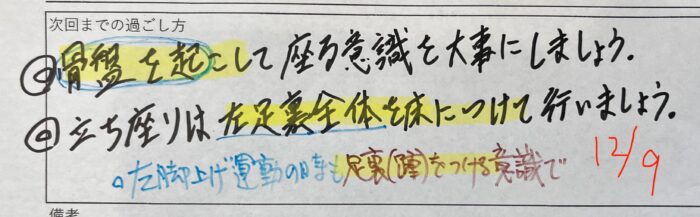 次回までの過ごし方
◎骨盤を起こして座る意識を大事にしましょう.
◎立ち座りは左足裏全体を床につけて行いましょう。
。左脚上げ運動の時も足裏(踵)をつける意識で
12/9
備考